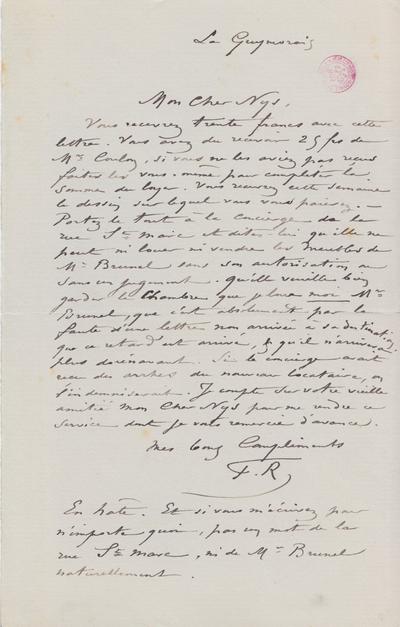 La Guymorais
Mon Cher Nys,
Vous recevrez trente francs avec cette
lettre. Vous avez du recevoir 25 frs de
Mr Coulon, si vous ne les aviez pas reçus
faites les vous-même pour compléter la
somme du loyer. Vous recevrez cette semaine
le dessin sur lequel vous vous paierez. –
Portez le tout à la concierge de la
rue Ste Marc et dites lui qu'elle ne
peut ni louer ni vendre les meubles de
Mr Brunel sans son autorisation, ou
sans un jugement. Qu'elle veuille bien
garder la chambre que
Brunel, que c'est absolument par la
faute d'une lettre non arrivée à sa destination
que ce retard est arrivé, & qu'il n'arrivera
plus dorénavant. Si la concierge avait
recu des arrhes du nouveau locataire, on
l'indemniserait. Je compte sur votre vieille
amitié mon Cher Nys pour me rendre ce
service dont je vous remercie d'avance.
Mes bons Compliments
F. R
En hâte. Et si vous m'écrivez pour
n'importe quoi, pas un mot de la
rue Ste Marc, ni de Mr Brunel
naturellement.